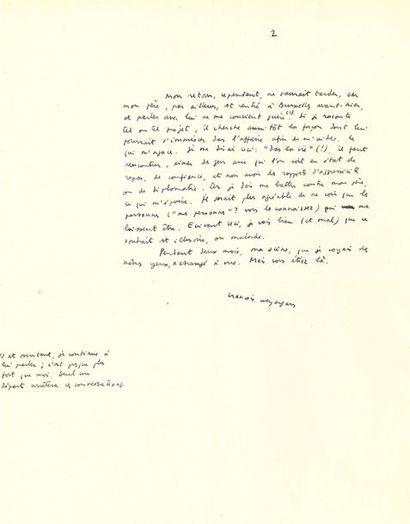 2
Mon retour, cependant, ne saurait tarder, car
mon père, par ailleurs, est rentré à Bruxelles avant-hier,
et parler avec lui ne me convient guère (1). Si je raconte
tel ou tel projet, il cherche aussitôt la façon dont lui
pourrait s'immiscer dans l'affaire afin de m'aider. Ce
qui m'agace. Je me disais ceci : "Dans la vie" (!), il faut
rencontrer, aimer des gens avec qui l'on soit en état de
repos, de confiance, et non avoir des rapports d'agressivité
ou de diplomatie. Or je dois me battre contre mon père,
ce qui m'épuise. Il serait plus agréable de ne voir que les
personnes ("mes personnes" ? vous les connaissez) qui me
laissent être. Écrivant ceci, je vois bien (et mal) que ce
souhait est illusoire, ou malade.
Pendant deux mois, ma scène, que je voyais des
mêmes yeux, a changé à vue. Mais vous étiez là.
François Weyergans
(1) et pourtant, je continue à
lui parler ; c'est presque plus
fort que moi. Seul un
départ arrêtera ces conversations.